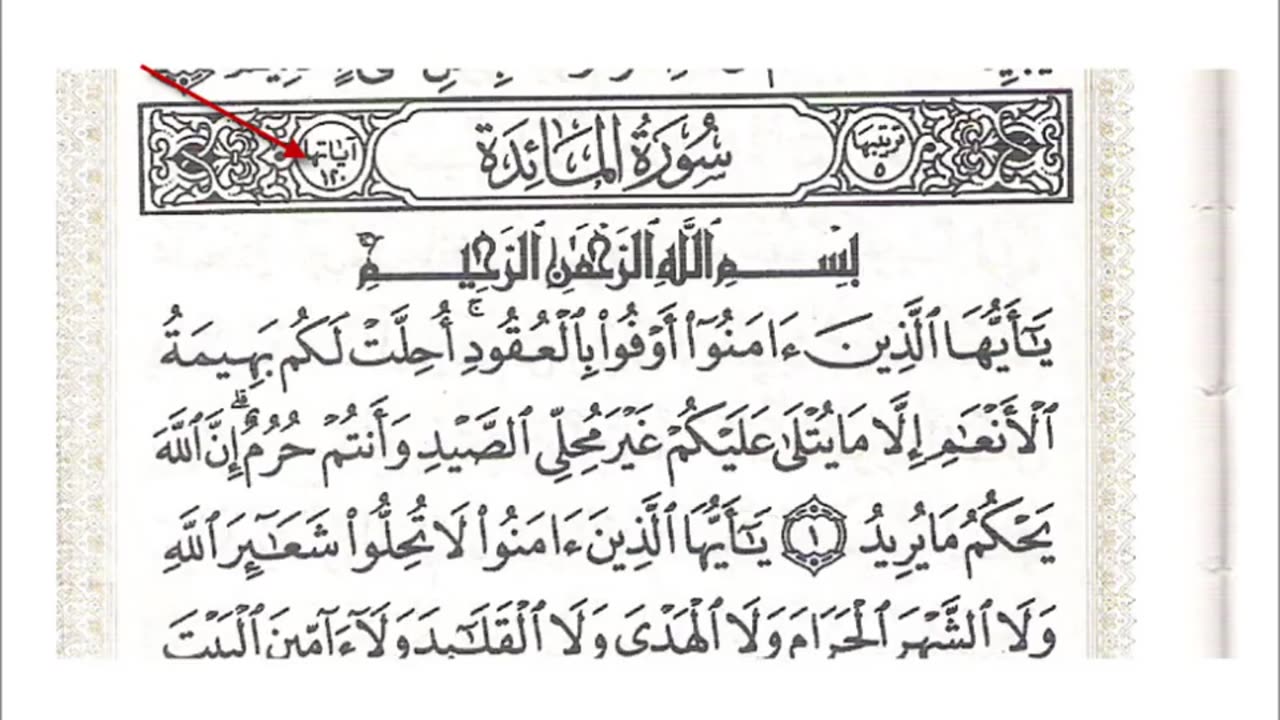 ترتيبها
٥
سُورَةُ المَائِدَة
آياتها
١٢٠
بِسْمِ ٱللَّهِ ٱلرَّحْمَٰنِ ٱلرَّحِيمِ
يَٰٓأَيُّهَا ٱلَّذِينَ ءَامَنُوٓا۟ أَوْفُوا۟ بِٱلْعُقُودِ ۚ أُحِلَّتْ لَكُم بَهِيمَةُ
ٱلْأَنْعَٰمِ إِلَّا مَا يُتْلَىٰ عَلَيْكُمْ غَيْرَ مُحِلِّى ٱلصَّيْدِ وَأَنتُمْ حُرُمٌ ۗ إِنَّ ٱللَّهَ
يَحْكُمُ مَا يُرِيدُ ١ يَٰٓأَيُّهَا ٱلَّذِينَ ءَامَنُوا۟ لَا تُحِلُّوا۟ شَعَٰٓئِرَ ٱللَّهِ
وَلَا ٱلشَّهْرَ ٱلْحَرَامَ وَلَا ٱلْهَدْىَ وَلَا ٱلْقَلَٰٓئِدَ وَلَآ ءَآمِّينَ ٱلْبَيْتَ